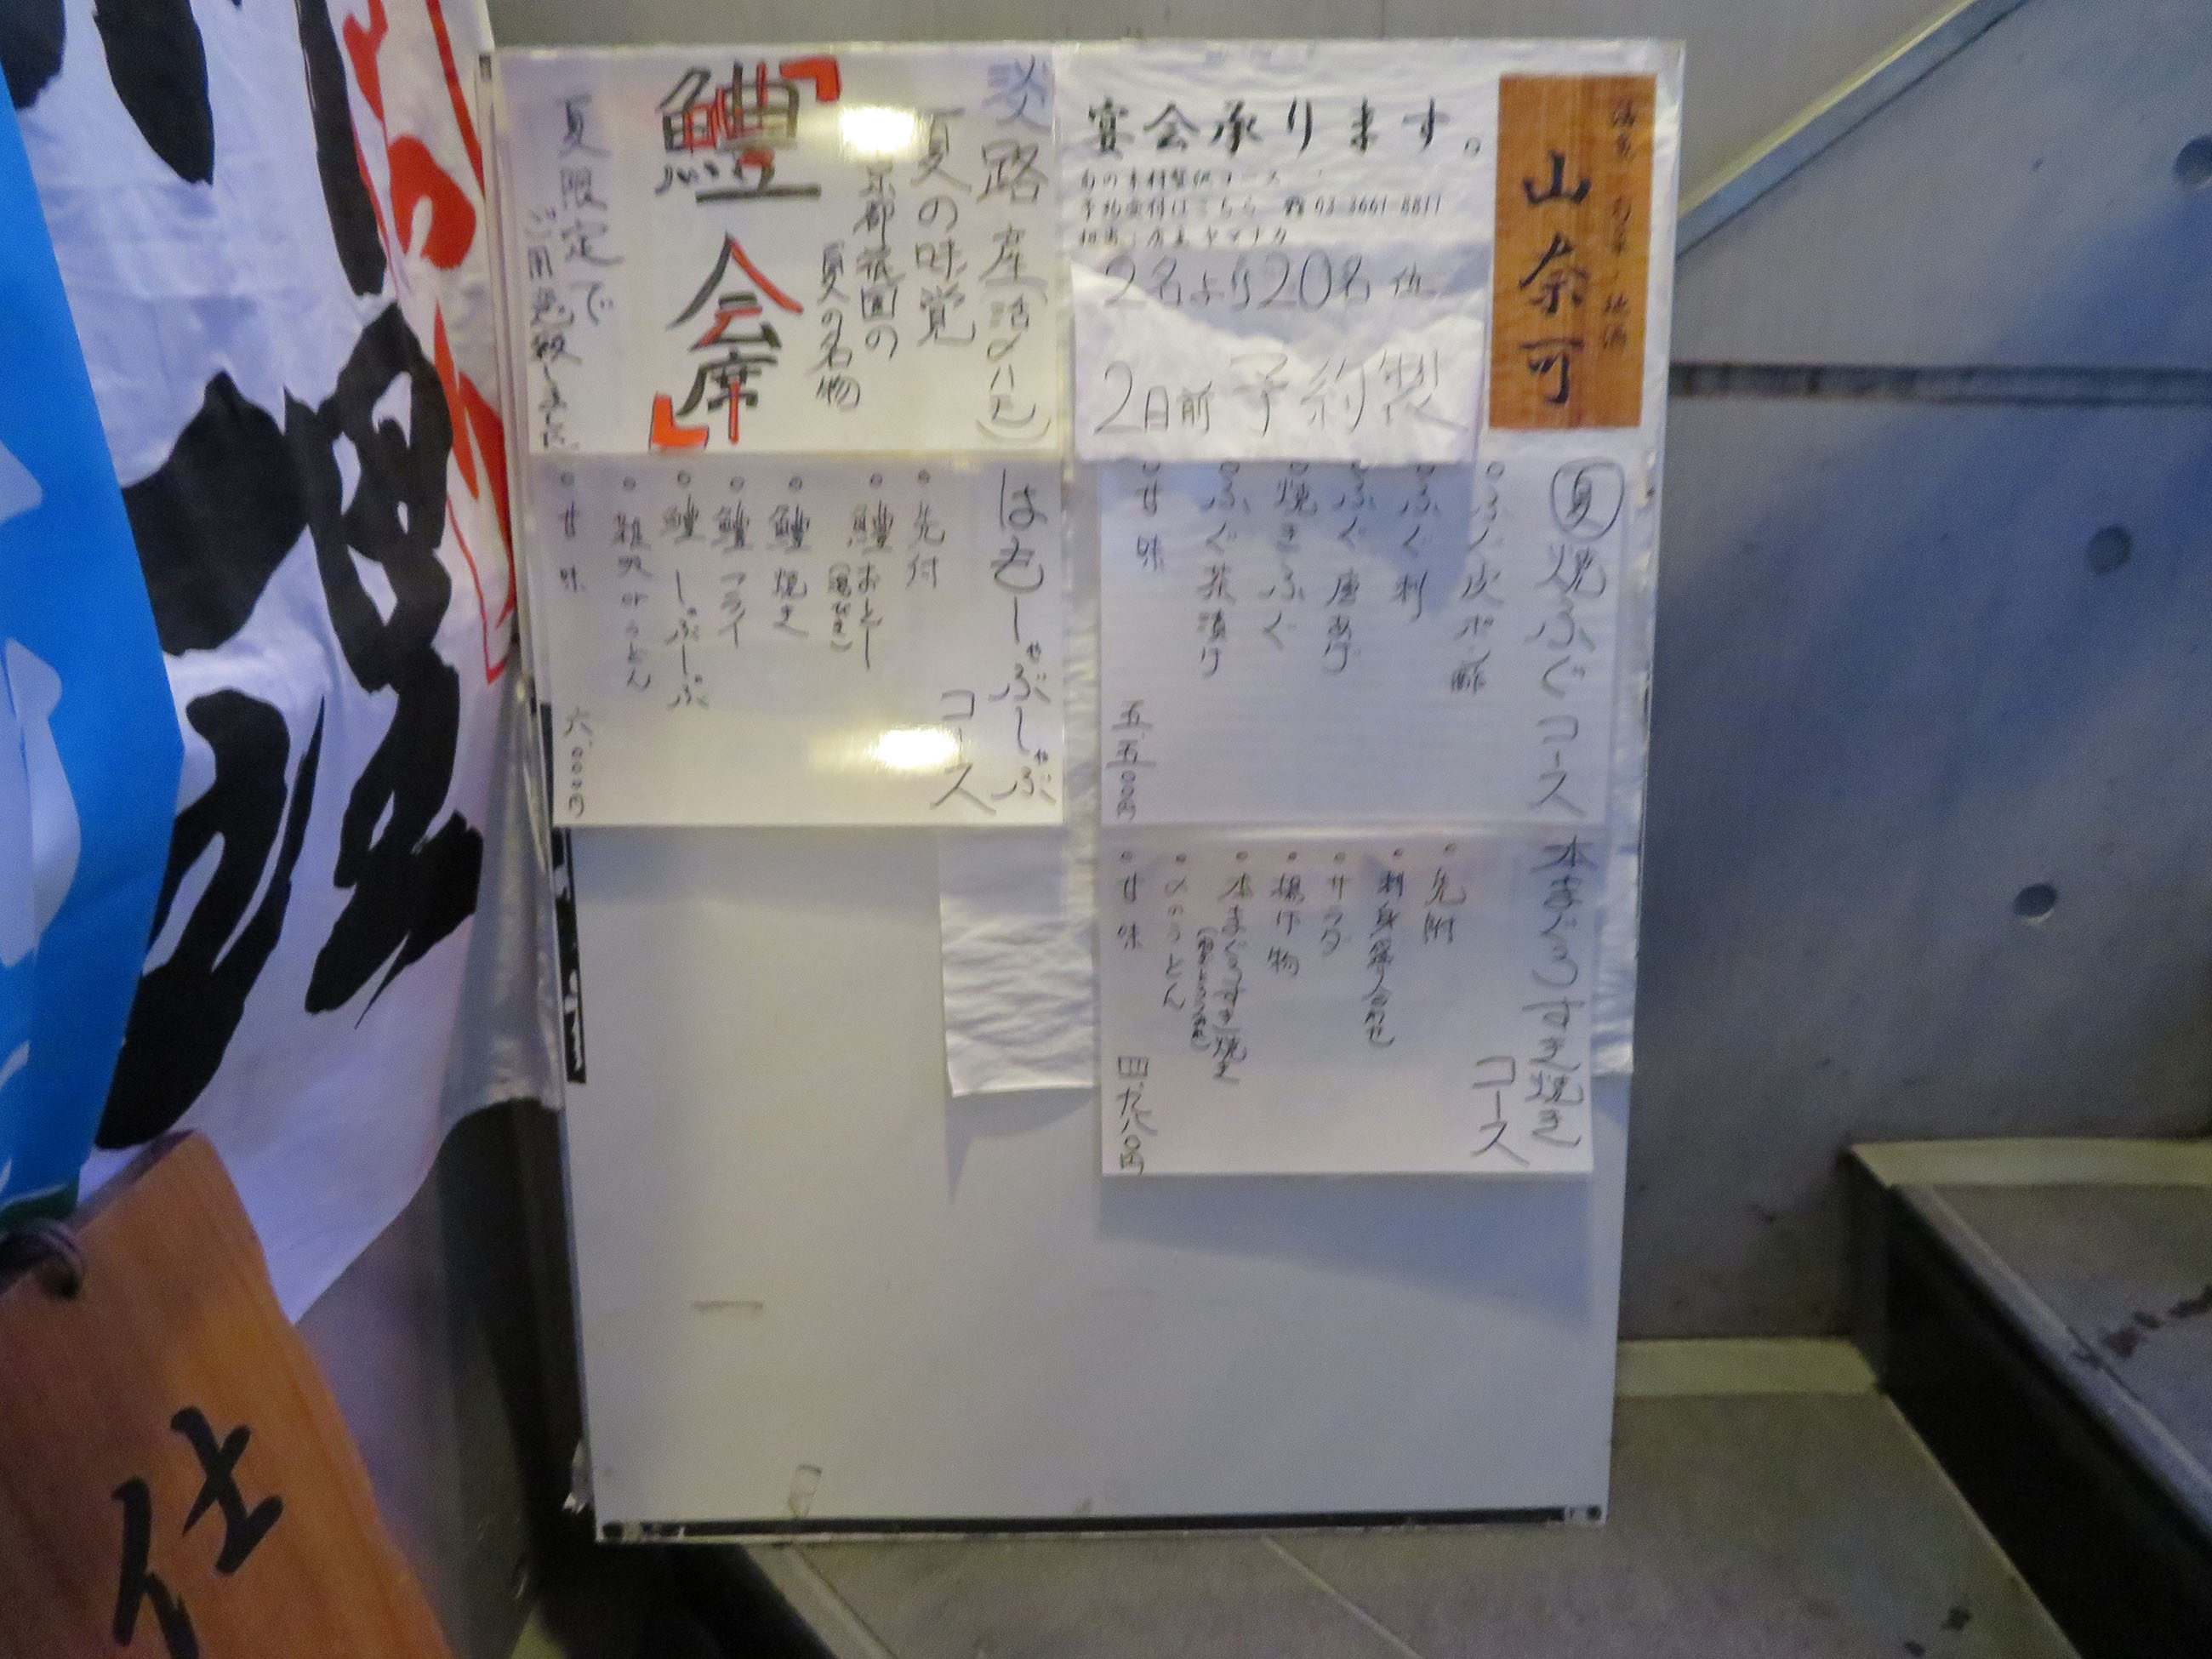 山奈可
宴会承ります。
予約受付はこちら ☎ 03-3661-8811
担当:店主 ヤマナカ
2名より20名位
2日前予約製
淡路産(活〆ハモ)
夏の味覚
京都祇園の
夏の名物
『鱧会席』
夏限定で
ご用意致しました。
夏 焼ふぐコース
。ふぐ皮ポン酢
。ふぐ刺
。ふぐ唐あげ
。焼きふぐ
。ふぐ茶漬け
。甘味
五.五〇〇円
はもしゃぶしゃぶ
コース
。先付
。鱧おとし
。鱧焼き
。鱧フライ
。鱧しゃぶしゃぶ
。雑炊orうどん
。甘味
六.〇〇〇円
本まぐろすき焼き
コース
。先附
。サラダ
。揚げ物
。本まぐろすき焼き
。〆のうどん
。甘味
仕